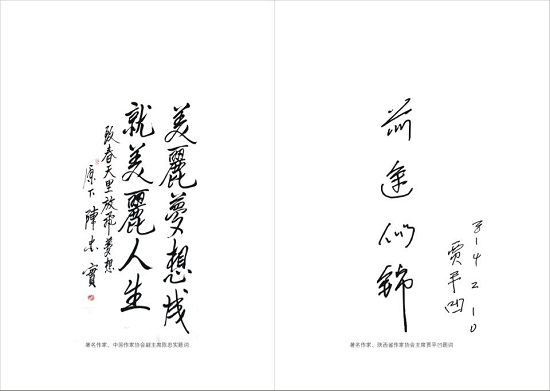 美麗夢想成
就美麗人生
致春天里放飛夢想
原下 陳忠實
著名作家、中国作家协会副主席陈忠实题词
前途似锦
2014.2.10
贾平凹
著名作家、陕西省作家协会主席贾平凹题词